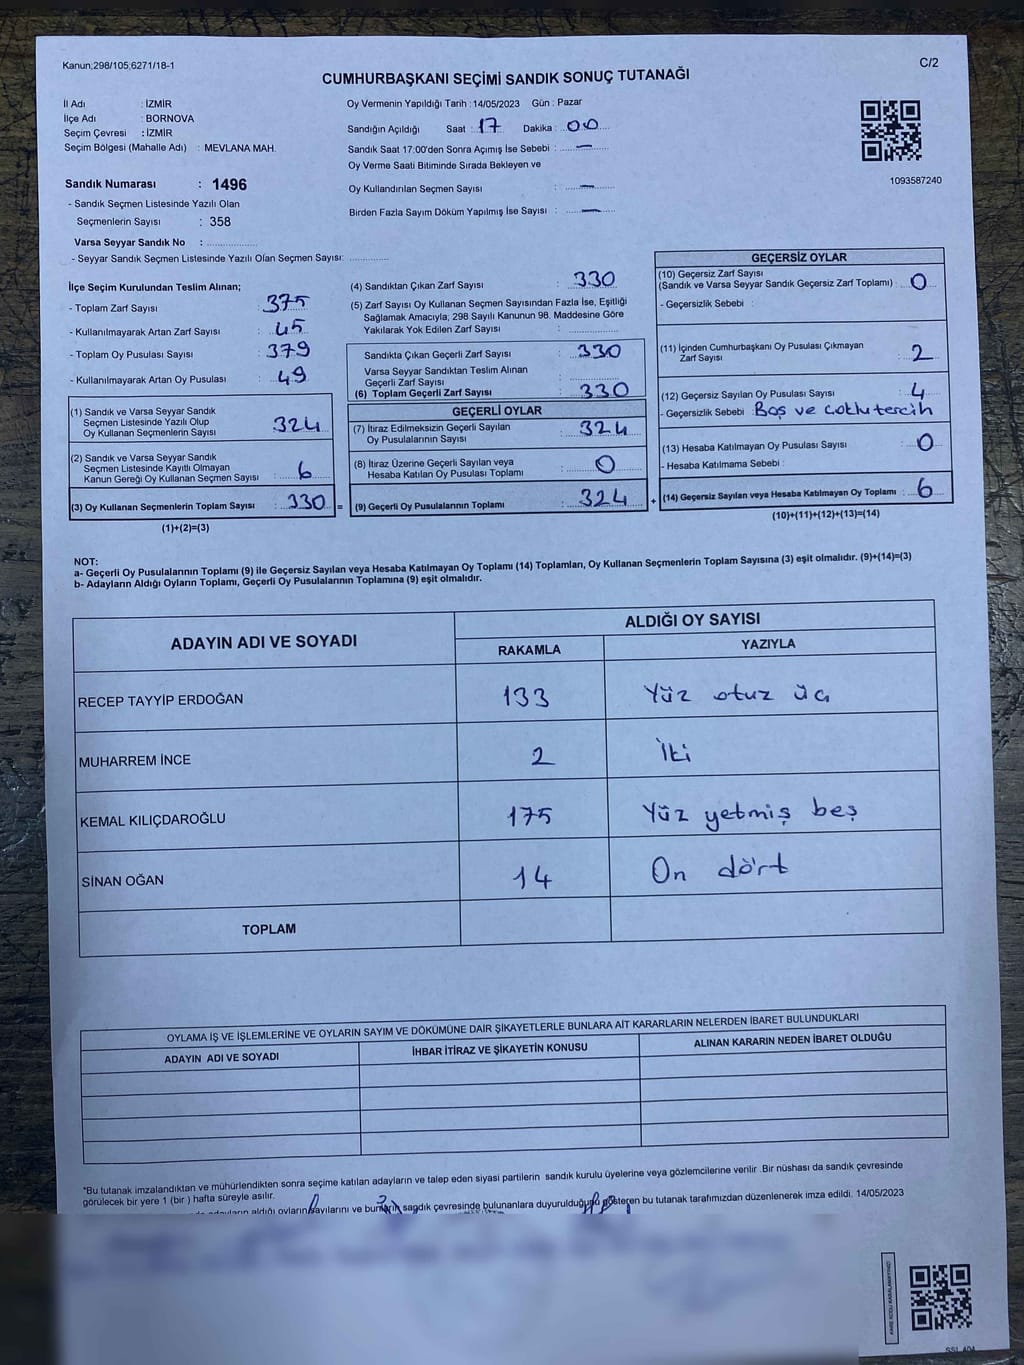 Kanun;298/105;6271/18-1
C/2
CUMHURBAŞKANI SEÇİMİ SANDIK SONUÇ TUTANAĞI
İl Adı : İZMİR
İlçe Adı : BORNOVA
Seçim Çevresi : İZMİR
Seçim Bölgesi (Mahalle Adı) : MEVLANA MAH.
Sandık Numarası : 1496
- Sandık Seçmen Listesinde Yazılı Olan
Seçmenlerin Sayısı : 358
Varsa Seyyar Sandık No : ................
- Seyyar Sandık Seçmen Listesinde Yazılı Olan Seçmen Sayısı: ............
Oy Vermenin Yapıldığı Tarih : 14/05/2023 Gün : Pazar
Sandığın Açıldığı Saat : 17 Dakika : 00
Sandık Saat 17:00'den Sonra Açımış İse Sebebi : —
Oy Verme Saati Bitiminde Sırada Bekleyen ve
Oy Kullandırılan Seçmen Sayısı : —
Birden Fazla Sayım Döküm Yapılmış İse Sayısı : —
1093587240
İlçe Seçim Kurulundan Teslim Alınan;
- Toplam Zarf Sayısı : 375
- Kullanılmayarak Artan Zarf Sayısı : 45
- Toplam Oy Pusulası Sayısı : 379
- Kullanılmayarak Artan Oy Pusulası : 49
(1) Sandık ve Varsa Seyyar Sandık
Seçmen Listesinde Yazılı Olup
Oy Kullanan Seçmenlerin Sayısı : 324
(2) Sandık ve Varsa Seyyar Sandık
Seçmen Listesinde Kayıtlı Olmayan
Kanun Gereği Oy Kullanan Seçmen Sayısı : 6
(3) Oy Kullanan Seçmenlerin Toplam Sayısı : 330 =
(1)+(2)=(3)
(4) Sandıktan Çıkan Zarf Sayısı : 330
(5) Zarf Sayısı Oy Kullanan Seçmen Sayısından Fazla İse, Eşitliği
Sağlamak Amacıyla; 298 Sayılı Kanunun 98. Maddesine Göre
Yakılarak Yok Edilen Zarf Sayısı : ...............
Sandıkta Çıkan Geçerli Zarf Sayısı : 330
Varsa Seyyar Sandıktan Teslim Alınan
Geçerli Zarf Sayısı : ...............
(6) Toplam Geçerli Zarf Sayısı : 330
GEÇERLİ OYLAR
(7) İtiraz Edilmeksizin Geçerli Sayılan
Oy Pusulalarının Sayısı : 324
(8) İtiraz Üzerine Geçerli Sayılan veya
Hesaba Katılan Oy Pusulası Toplamı : 0
(9) Geçerli Oy Pusulalarının Toplamı : 324 +
GEÇERSİZ OYLAR
(10) Geçersiz Zarf Sayısı
(Sandık ve Varsa Seyyar Sandık Geçersiz Zarf Toplamı) : 0
- Geçersizlik Sebebi :
(11) İçinden Cumhurbaşkanı Oy Pusulası Çıkmayan
Zarf Sayısı : 2
(12) Geçersiz Sayılan Oy Pusulası Sayısı : 4
- Geçersizlik Sebebi : Boş ve çoklu tercih
(13) Hesaba Katılmayan Oy Pusulası Sayısı : 0
- Hesaba Katılmama Sebebi :
(14) Geçersiz Sayılan veya Hesaba Katılmayan Oy Toplamı : 6
(10)+(11)+(12)+(13)=(14)
NOT:
a- Geçerli Oy Pusulalarının Toplamı (9) ile Geçersiz Sayılan veya Hesaba Katılmayan Oy Toplamı (14) Toplamları, Oy Kullanan Seçmenlerin Toplam Sayısına (3) eşit olmalıdır. (9)+(14)=(3)
b- Adayların Aldığı Oyların Toplamı, Geçerli Oy Pusulalarının Toplamına (9) eşit olmalıdır.
ADAYIN ADI VE SOYADI
ALDIĞI OY SAYISI
RAKAMLA YAZIYLA
RECEP TAYYİP ERDOĞAN 133 Yüz otuz üç
MUHARREM İNCE 2 İki
KEMAL KILIÇDAROĞLU 175 Yüz yetmiş beş
SİNAN OĞAN 14 On dört
TOPLAM
OYLAMA İŞ VE İŞLEMLERİNE VE OYLARIN SAYIM VE DÖKÜMÜNE DAİR ŞİKAYETLERLE BUNLARA AİT KARARLARIN NELERDEN İBARET BULUNDUKLARI
ADAYIN ADI VE SOYADI İHBAR İTİRAZ VE ŞİKAYETİN KONUSU ALINAN KARARIN NEDEN İBARET OLDUĞU
*Bu tutanak imzalandıktan ve mühürlendikten sonra seçime katılan adayların ve talep eden siyasi partilerin sandık kurulu üyelerine veya gözlemcilerine verilir .Bir nüshası da sandık çevresinde
görülecek bir yere 1 (bir ) hafta süreyle asılır.
adayların aldığı oyların sayılarını ve bunların sandık çevresinde bulunanlara duyurulduğunu gösteren bu tutanak tarafımızdan düzenlenerek imza edildi. 14/05/2023